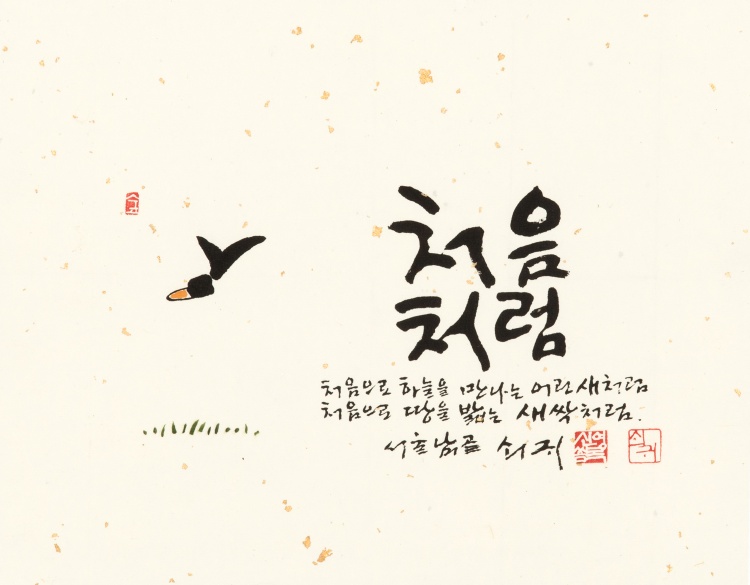 처음
처럼
처음으로 하늘을 만나는 어린 새처럼
처음으로 땅을 밟는 새싹처럼.
서울 쇠귀